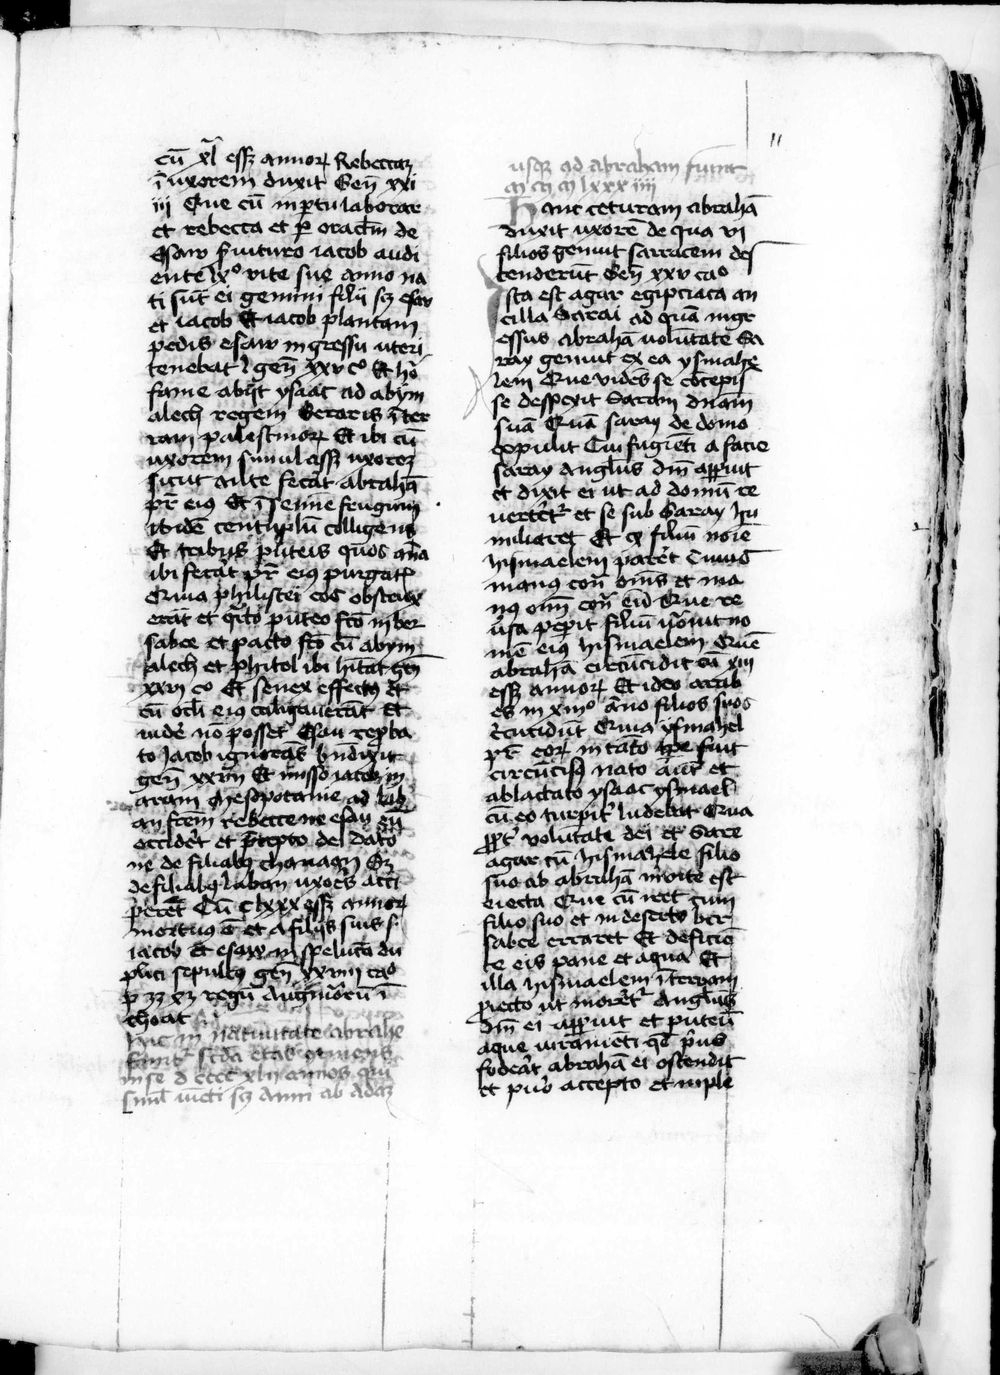 11
cū xl essz annoꝝ Rebeccaz
ī uxorem duxit Gen̄ xxi
iiij Que cū in ptu laborar
et rebecca et ꝑ oraclm̄ de
Esaw futuro iacob audi
ente lxº vite sue anno na
ti sūt ei gemini filij sꝫ esaw
et iacob Et iacob plantam
pedis esaw in gressu uteri
tenebat gen̄ xxv cº Et
fame abijt ysaac ad abym
alech regem Geraris ī ter
ram palestinoꝝ Et ibi cū
uxorem simul
sicut ante fecāt abrahā
pr̄ eiꝰ Et ī semine frugum
ibidē centuplū colligens
Et puteis quos
ibi fecāt pr̄ eiꝰ purgat
Quia philistei eos obstrux
erāt et puteo fc̄o in ber
sabee et pacto fc̄o cū abym
alech et phitol ibi hītat gen̄
xxvi cº Et senex effectꝰ
cū ocłi eiꝰ caligauerāt Et
uidē nō posset Esau repba
to Jacob ignorās bn̄dixit
gen̄ xxvii Et misso iacob in
aram mesopotamie ad lab
an frēm rebecce ne esau eū
occidēt et p̄cepto dei dato
ne de filiabꝫ chanaan Sꝫ
de filiabꝫ laban uxorē acci
peret Cū clxxx essꝫ annoꝝ
mortuꝰ ē et a filijs suis s
iacob et esaw in spelūca du
plici sepultꝰ gen̄ xxviii caº
regū ī
choat
hic in natiuitate abrahe
scd̄a etas
in se dcccc xlii annos qui
simł iūcti sꝫ anni ab adaz
usqꝫ ad abraham
lxxxiiii
Hanc ceturam abrahā
duxit uxorē de qua vi
filios genuit sarracem des
cenderūt Gen̄ xxv caº
Ista est agar egipciaca an
cilla Sarai ad quā ingr
essus abrahā uolūtate Sa
ray genuit ex ea ysmahe
lem Que vidēs se cōcepis
se despexit Saram dn̄am
suā Quā saray de domo
expulit Cui fugiēti a facie
saray angłus dn̄i apparuit
et dixit ei ut ad domū re
uertēt et se sub Saray hu
miliaret Et filiū noīe
hismaelem parēt Cuius
manus con̄ om̄s et ma
nꝰ om̄ con̄ eū Que re
ūsa peperit filiū uocauit no
mē eiꝰ hismaelem Quē
abrahā circūcidit cū xiii
essꝫ annoꝝ Et ideo arab
es in xiiiº āno filios suos
circūcidūt Quia ysmahel
pr̄ eoꝝ in tāto tpe fuit
circūcisꝰ nato aūt et
ablactato ysaac ysmael
cū eo turpit̄ ludebat Qua
ppt̄ volūtate dei et Sare
agar cū hismahele filio
suo ab abrahā inuite est
eiecta Que cū iret cum
filio suo et in deserto ber
sabee erraret Et deficiē
te eis pane et aqua Et
illa hismaelem ī terram
proiecto ut morēt angłus
dn̄i ei apparuit et puteū
aque uiuē
foderāt abrahā ei ostendit
et puō accepto et imple